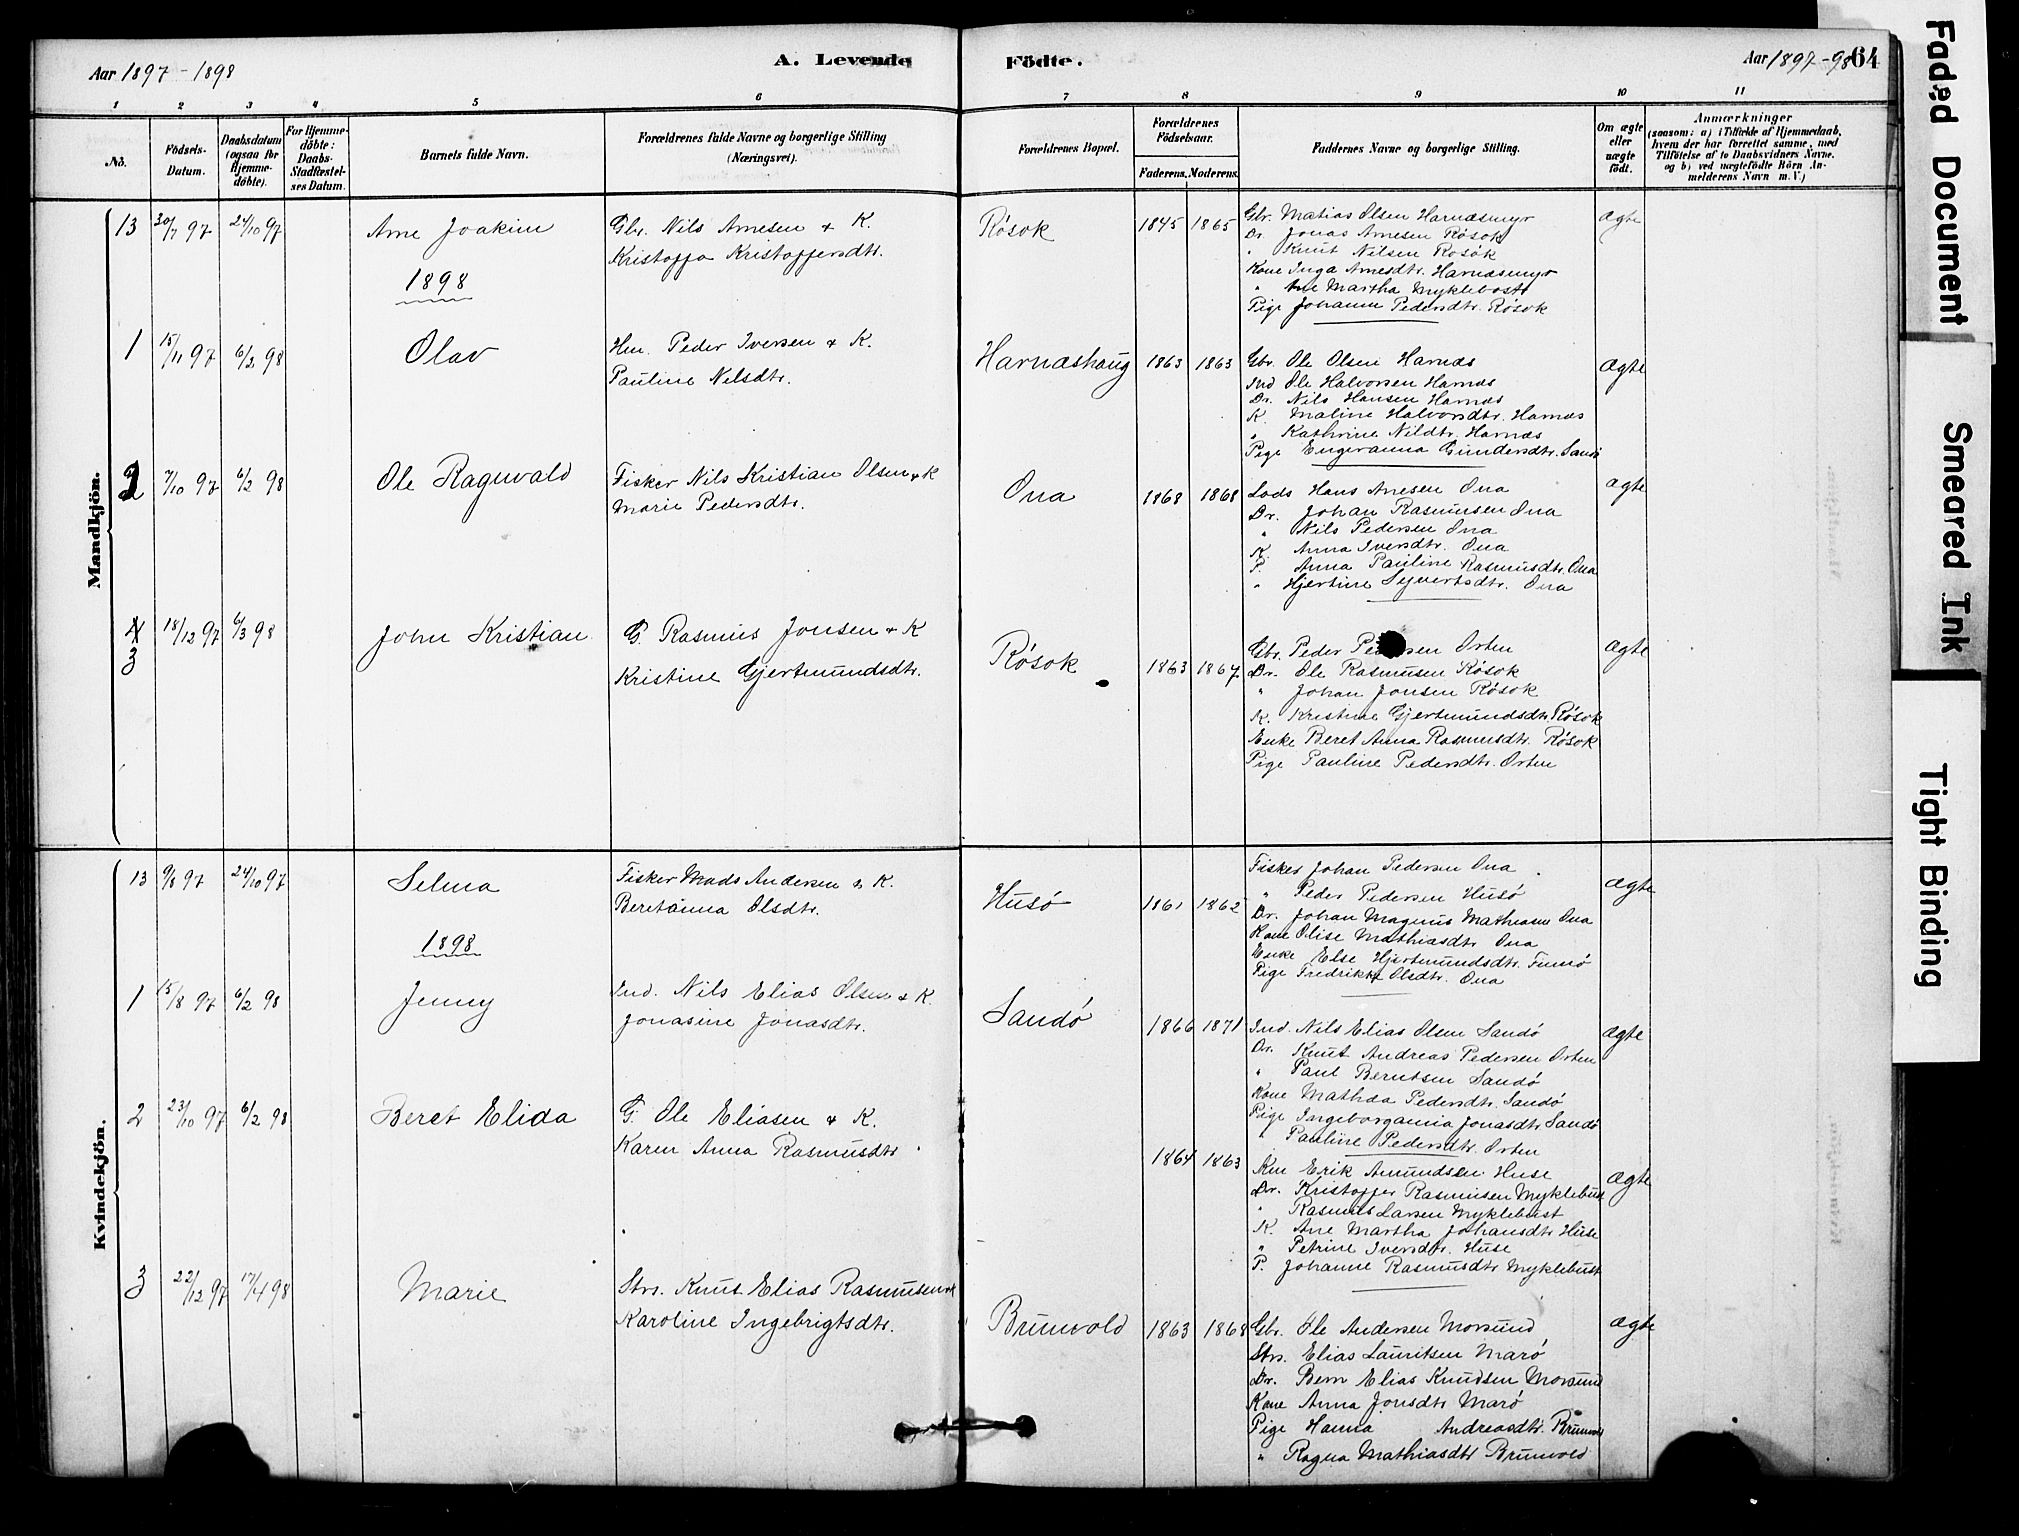 Aar 1897-1898
A. Levende
Födte.
Aar 1897-98
64
1 2 3 4 5 6 7 8 9 10 11
No.
Födsels-
Datum.
Daabsdatum
(ogsaa for
Hjemme-
döbte).
For Hjemme-
döbte:
Daabs-
Stadfæstel-
ses Datum.
Barnets fulde Navn.
Forældrenes fulde Navne og borgerlige Stilling
(Næringsvei).
Forældrenes Bopæl.
Forældrenes
Födselsaar.
Faderens. Moderens.
Faddernes Navne og borgerlige Stilling.
Om ægte
eller
uægte
födt.
Anmærkninger
(saasom: a) i Tilfælde af Hjemmedaab,
hvem der har forrettet samme, med
Tilföielse af to Daabsvidners Navne,
og b) ved uægtefödte Börn An-
melderens Navn m. V.)
Mandkjön.
13 30/7 97 24/10 97 Arne Joakim
Gbr. Nils Arnesen & K.
Kristoffa Kristoffersdtr.
Røsok 1845 1865
Gbr. Matias Olsen Harnæsmyr
Dr. Jonas Arnesen Røsok
" Knut Nilsen Røsok
Kone Inga Arnesdtr. Harnæsmyr
" Ane Martha Myklebost
Pige Johanna Pedersdtr. Røsok
ægte
1898
1 15/11 97 6/2 98 Olav
Hm. Peder Iversen & K.
Pauline Nilsdtr.
Harnæshaug 1863 1863
Gbr. Ole Olsen Harnæs
Ind Ole Halvorsen Harnæs
Dr. Nils Hansen Harnæs
K. Maline Halvorsdtr. Harnæs
" Kathrine Nilsdtr. Harnæs
Pige Engeranna Gundersdtr. Sandø
ægte
2 7/10 97 6/2 98 Ole Ragnvald
Fisker Nils Kristian Olsen & K
Marie Pedersdtr.
Ona 1868 1868
Lods Hans Arnesen Ona
Dr. Johan Rasmussen Ona
" Nils Pedersen Ona
K. Anna Iversdtr. Ona
P. Anna Pauline Rasmusdtr. Ona
" Hjertine Syvertsdtr. Ona
ægte
4
3
18/12 97 6/3 98 John Kristian
G. Rasmus Jonsen & K
Kristine Gjertmundsdtr.
Røsok 1863 1867
Gbr. Peder Pedersen Orten
Dr. Ole Rasmusen Røsok
" Johan Jonsen Røsok
K. Kristine Gjertmundsdtr. Røsok
Enke Beret Anna Rasmusdtr. Røsok
Pige Pauline Pedersdtr. Orten
ægte
Kvindekjön.
13 9/8 97 24/10 97 Selma
Fisker Mads Andersen & K.
Beretanna Olsdtr.
Husø 1861 1862
Fisker Johan Pedersen Ona
" Peder Pedersen Husø
Dr. Johan Magnus Mathiasen Ona
Kone Olise Mathiasdtr Ona
Enke Else Hjertmundsdtr. Finnø
Pige Fredrikke Olsdtr. Ona
ægte
1898
1 15/8 97 6/2 98 Jenny
Ind. Nils Elias Olsen & K.
Jonasine Jonasdtr.
Sandø 1866 1871
Ind. Nils Elias Olsen Sandø
Dr. Knut Andreas Pedersen Orten
" Paul Berntsen Sandø
Kone Mathea Pedersdtr. Sandø
Pige Ingeborganna Jonasdtr. Sandø
" Pauline Pedersdtr. Orten
ægte
2 23/10 97 6/2 98 Beret Elida
G. Ole Eliasen & K.
Karen Anna Rasmusdtr
1864 1863
Km Erik Amundsen Huse
Dr. Kristoffer Rasmusen Myklebust
" Rasmus Larsen Myklebust
K. Ane Martha Johansdtr Huse
" Petrine Iversdtr. Huse
P. Johanne Rasmusdtr Myklebust
ægte
3 22/12 97 17/4 98 Marie
Str. Knut Elias Rasmusen &
Karoline Ingebrigtsdtr.
Brunvold 1863 1868
Gbr. Ole Andersen Morsund
Str. Elias Lauritsen Marø
Dr. Bern Elias Knudsen Morsund
Kone Anna Jonsdtr Marø
Pige Hanna Andreasdtr. Brunvold
" Ragna Mathiasdtr Brunvold
ægte
Faded Document
Smeared Ink
Tight Binding